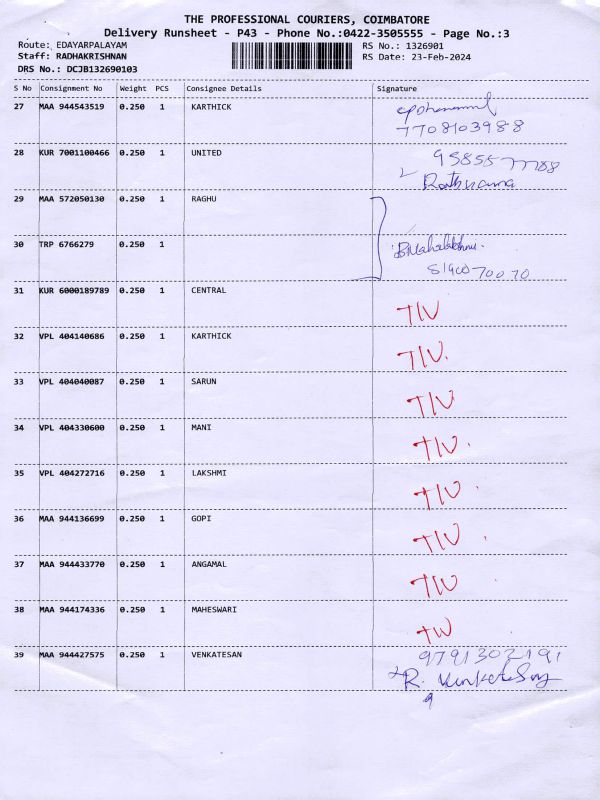 THE PROFESSIONAL COURIERS, COIMBATORE
Delivery Runsheet - P43 - Phone No.:0422-3505555 - Page No.:3
Route: EDAYARPALAYAM RS No.: 1326901
Staff: RADHAKRISHNAN RS Date: 23-Feb-2024
DRS No.: DCJB132690103
S No Consignment No Weight PCS Consignee Details Signature
27 MAA 944543519 0.250 1 KARTHICK
7708103988
28 KUR 7001100466 0.250 1 UNITED
29 MAA 572050130 0.250 1 RAGHU
30 TRP 6766279 0.250 1
31 KUR 6000189789 0.250 1 CENTRAL TIV
32 VPL 404140686 0.250 1 KARTHICK TIV.
33 VPL 404040087 0.250 1 SARUN TIV
34 VPL 404330600 0.250 1 MANI TIV.
35 VPL 404272716 0.250 1 LAKSHMI TIV.
36 MAA 944136699 0.250 1 GOPI TIV
37 MAA 944433770 0.250 1 ANGAMAL TIV
38 MAA 944174336 0.250 1 MAHESWARI TIV
39 MAA 944427575 0.250 1 VENKATESAN 9791302191
R.